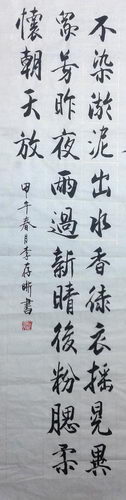 不染淤泥出水香徐衣摇晃異
彩芳昨夜雨過新晴後粉腮柔
懷朝天放
甲午春月李存晰書